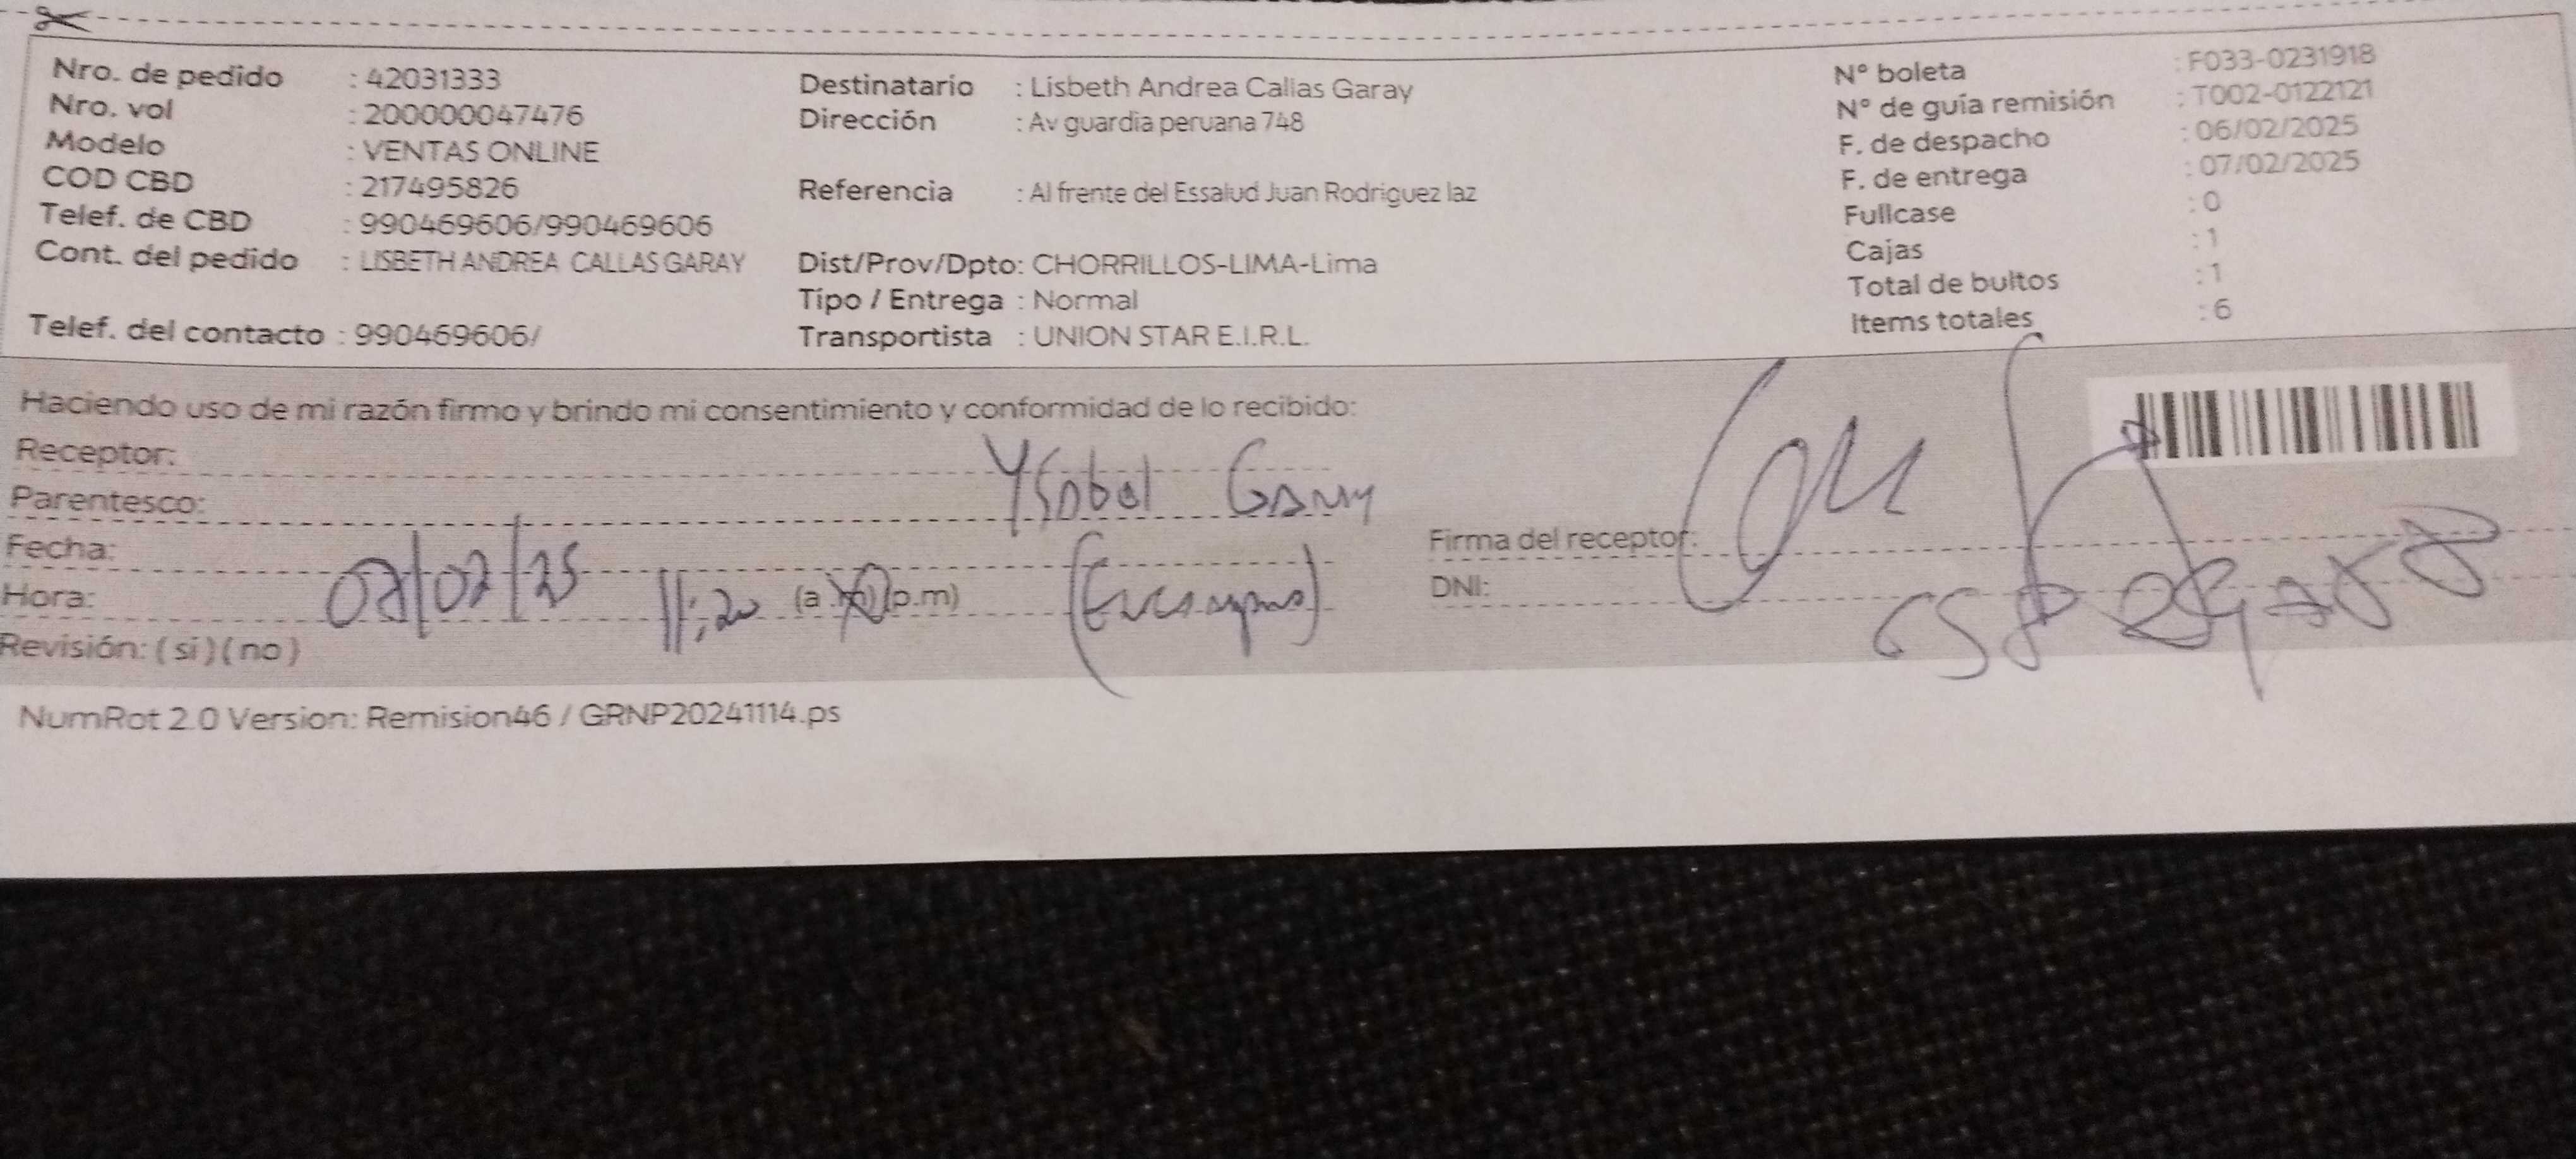 Nro. de pedido : 42031333
Nro. vol : 200000047476
Modelo : VENTAS ONLINE
COD CBD : 217495826
Telef. de CBD : 990469606/990469606
Cont. del pedido : LISBETH ANDREA CALLAS GARAY
Telef. del contacto : 990469606/
Destinatario : Lisbeth Andrea Callas Garay
Dirección : Av guardia peruana 748
Referencia : Al frente del Essalud Juan Rodriguez laz
Dist/Prov/Dpto: CHORRILLOS-LIMA-Lima
Tipo / Entrega : Normal
Transportista : UNION STAR E.I.R.L.
N° boleta : F033-0231918
N° de guía remisión : T002-0122121
F. de despacho : 06/02/2025
F. de entrega : 07/02/2025
Fullcase : 0
Cajas : 1
Total de bultos : 1
Items totales : 6
Haciendo uso de mi razón firmo y brindo mi consentimiento y conformidad de lo recibido:
Receptor: Ysabel Garay
Parentesco:
Fecha: 07/02/25
Hora: 11:20 (a.m) (p.m)
Revisión: ( si ) ( no )
Firma del receptor:
DNI:
NumRot 2.0 Version: Remision46 / GRNP20241114.ps